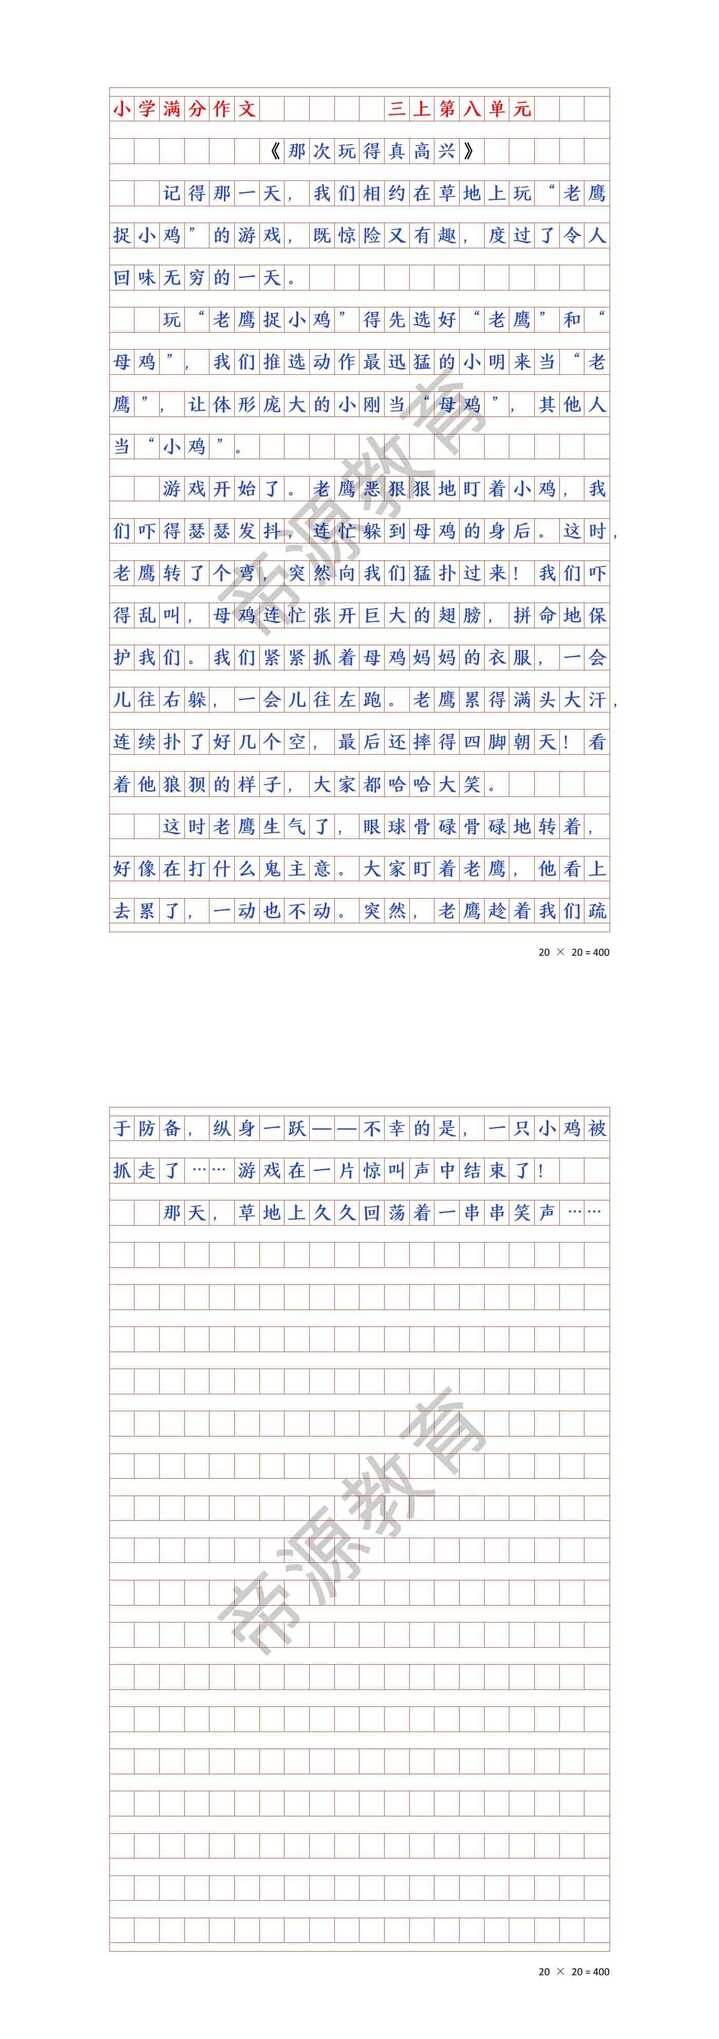 小学满分作文 三上第八单元
《那次玩得真高兴》
记得那一天，我们相约在草地上玩“老鹰
捉小鸡”的游戏，既惊险又有趣，度过了令人
回味无穷的一天。
玩“老鹰捉小鸡”得先选好“老鹰”和“
母鸡”，我们推选动作最迅猛的小明来当“老
鹰”，让体形庞大的小刚当“母鸡”，其他人
当“小鸡”。
游戏开始了。老鹰恶狠狠地盯着小鸡，我
们吓得瑟瑟发抖，连忙躲到母鸡的身后。这时，
老鹰转了个弯，突然向我们猛扑过来！我们吓
得乱叫，母鸡连忙张开巨大的翅膀，拼命地保
护我们。我们紧紧抓着母鸡妈妈的衣服，一会
儿往右躲，一会儿往左跑。老鹰累得满头大汗，
连续扑了好几个空，最后还摔得四脚朝天！看
着他狼狈的样子，大家都哈哈大笑。
这时老鹰生气了，眼球骨碌骨碌地转着，
好像在打什么鬼主意。大家盯着老鹰，他看上
去累了，一动也不动。突然，老鹰趁着我们疏
20 × 20 = 400
于防备，纵身一跃——不幸的是，一只小鸡被
抓走了……游戏在一片惊叫声中结束了！
那天，草地上久久回荡着一串串笑声……
20 × 20 = 400
帝源教育
帝源教育